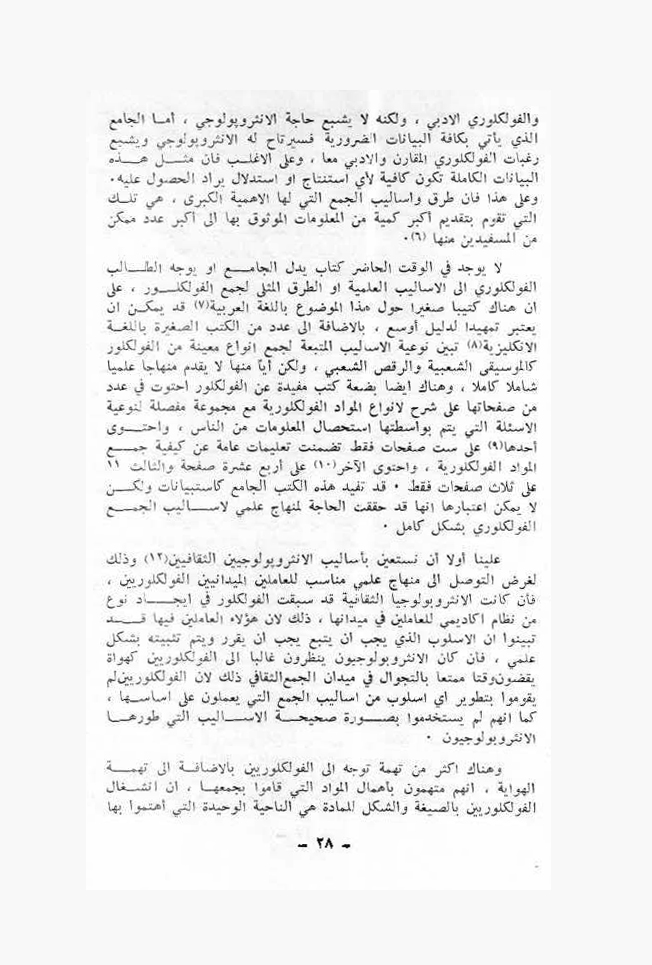 والفولكلوري الادبي ، ولكنه لا يشبع حاجة الانثروپولوجي ، أمـا الجامع
الذي يأتي بكافة البيانات الضرورية فسيرتاح له الانثروپولوجي ويشبع
رغبات الفولكلوري المقارن والادبي معا ، وعلى الاغلب فان مثـل هـذه
البيانات الكاملة تكون كافية لأي استنتاج او استدلال يراد الحصول عليه.
وعلى هذا فان طرق واساليب الجمع التي لها الاهمية الكبرى ، هي تلـك
التي تقوم بتقديم أكبر كمية من المعلومات الموثوق بها الى أكبر عدد ممكن
من المسفيدين منها (٦).
لا يوجد في الوقت الحاضر كتاب يدل الجامـع او يوجه الطـالب
الفولكلوري الى الاساليب العلمية او الطرق المثلى لجمع الفولكلـور ، على
ان هناك كتيبا صغيرا حول هذا الموضوع باللغة العربية(٧) قد يمكـن ان
يعتبر تمهيدا لدليل أوسع ، بالاضافة الى عدد من الكتب الصغيرة باللغـة
الانكليزية(٨) تبين نوعية الاساليب المتبعة لجمع انواع معينة من الفولكلور
كالموسيقى الشعبية والرقص الشعبي ، ولكن أياً منها لا يقدم منهاجا علميا
شاملا كاملا ، وهناك ايضا بضعة كتب مفيدة عن الفولكلور احتوت في عدد
من صفحاتها على شرح لانواع المواد الفولكلورية مع مجموعة مفصلة لنوعية
الاسئلة التي يتم بواسطتها استحصال المعلومات من الناس ، واحتـوى
أحدها(٩) على ست صفحات فقط تضمنت تعليمات عامة عن كيفية جمـع
المواد الفولكلورية ، واحتوى الآخر(١٠) على أربع عشرة صفحة والثالث ١١
على ثلاث صفحات فقط . قد تفيد هذه الكتب الجامع كاستبيانات ولكـن
لا يمكن اعتبارها انها قد حققت الحاجة لمنهاج علمي لاسـاليب الجمـع
الفولكلوري بشكل كامل .
علينا أولا أن نستعين بأساليب الانثروپولوجيين الثقافيين(١٢) وذلك
لغرض التوصل الى منهاج علمي مناسب للعاملين الميدانيين الفولكلوريين ،
فأن كانت الانثروبولوجيا الثقافية قد سبقت الفولكلور في ايجـاد نوع
من نظام اكاديمي للعاملين في ميدانها ، ذلك لان هؤلاء العاملين فيها قـد
تبينوا ان الاسلوب الذي يجب ان يتبع يجب ان يقرر ويتم تثبيته بشكل
علمي ، فأن كان الانثروبولوجيون ينظرون غالبا الى الفولكلوريين كهواة
يقضون وقتا ممتعا بالتجوال في ميدان الجمع الثقافي ذلك لان الفولكلوريين لم
يقوموا بتطوير اي اسلوب من اساليب الجمع التي يعملون على اساسـها ،
كما انهم لم يستخدموا بصـورة صحيحـة الاسـاليب التي طورهـا
الانثروبولوجيون .
وهناك اكثر من تهمة توجه الى الفولكلوريين بالاضافـة الى تهمـة
الهواية ، انهم متهمون بأهمال المواد التي قاموا بجمعهـا ، ان انشـغال
الفولكلوريين بالصيغة والشكل للمادة هي الناحية الوحيدة التي أهتموا بها
- ٢٨ -